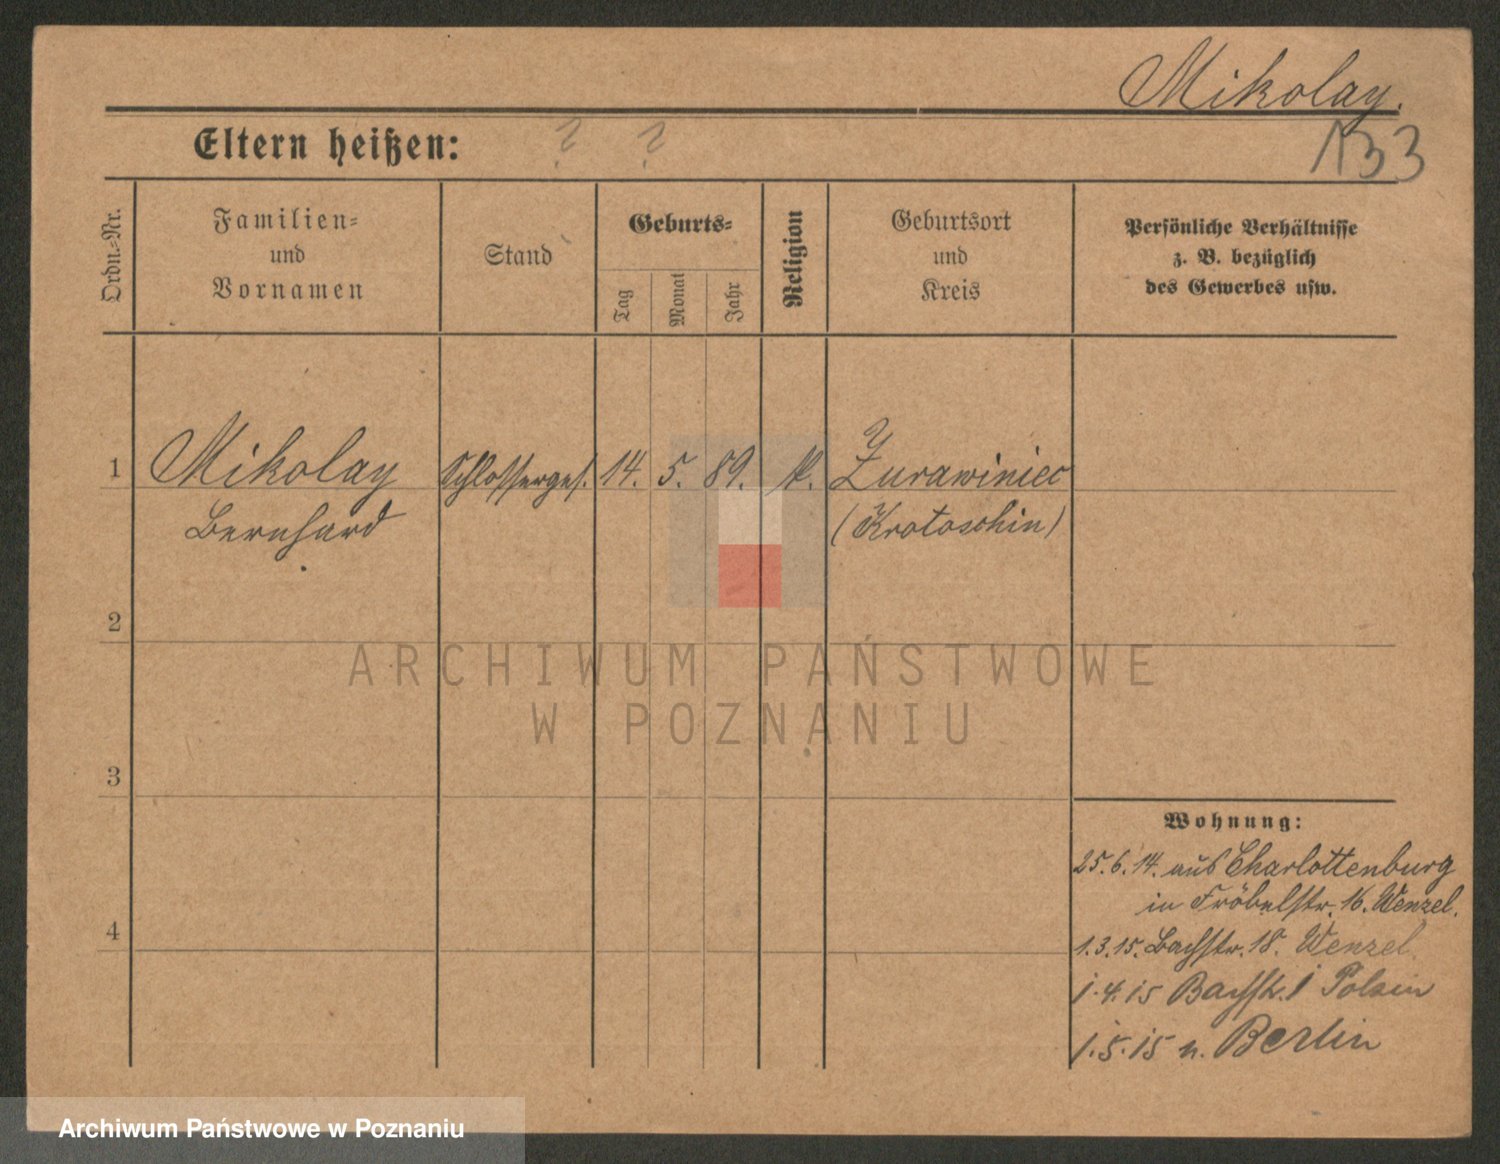 Mikolay.
133
Eltern heißen: ? ?
Ordn.=Nr.
Familien=
und
Vornamen
Stand
Geburts=
Tag
Monat
Jahr
Religion
Geburtsort
und
Kreis
Persönliche Verhältnisse
z. B. bezüglich
des Gewerbes usw.
1 Mikolay Schlosserges. 14. 5. 89. k. Zurawiniec
Bernhard (Krotoschin)
2
3
4
Wohnung:
25.6.14. aus Charlottenburg
in Fröbelstr. 16. Wenzel.
1.3.15. Bachstr. 18. Wenzel.
1.4.15 Bachstr. 1
1.5.15 n. Berlin
ARCHIWUM PAŃSTWOWE
W POZNANIU
Archiwum Państwowe w Poznaniu